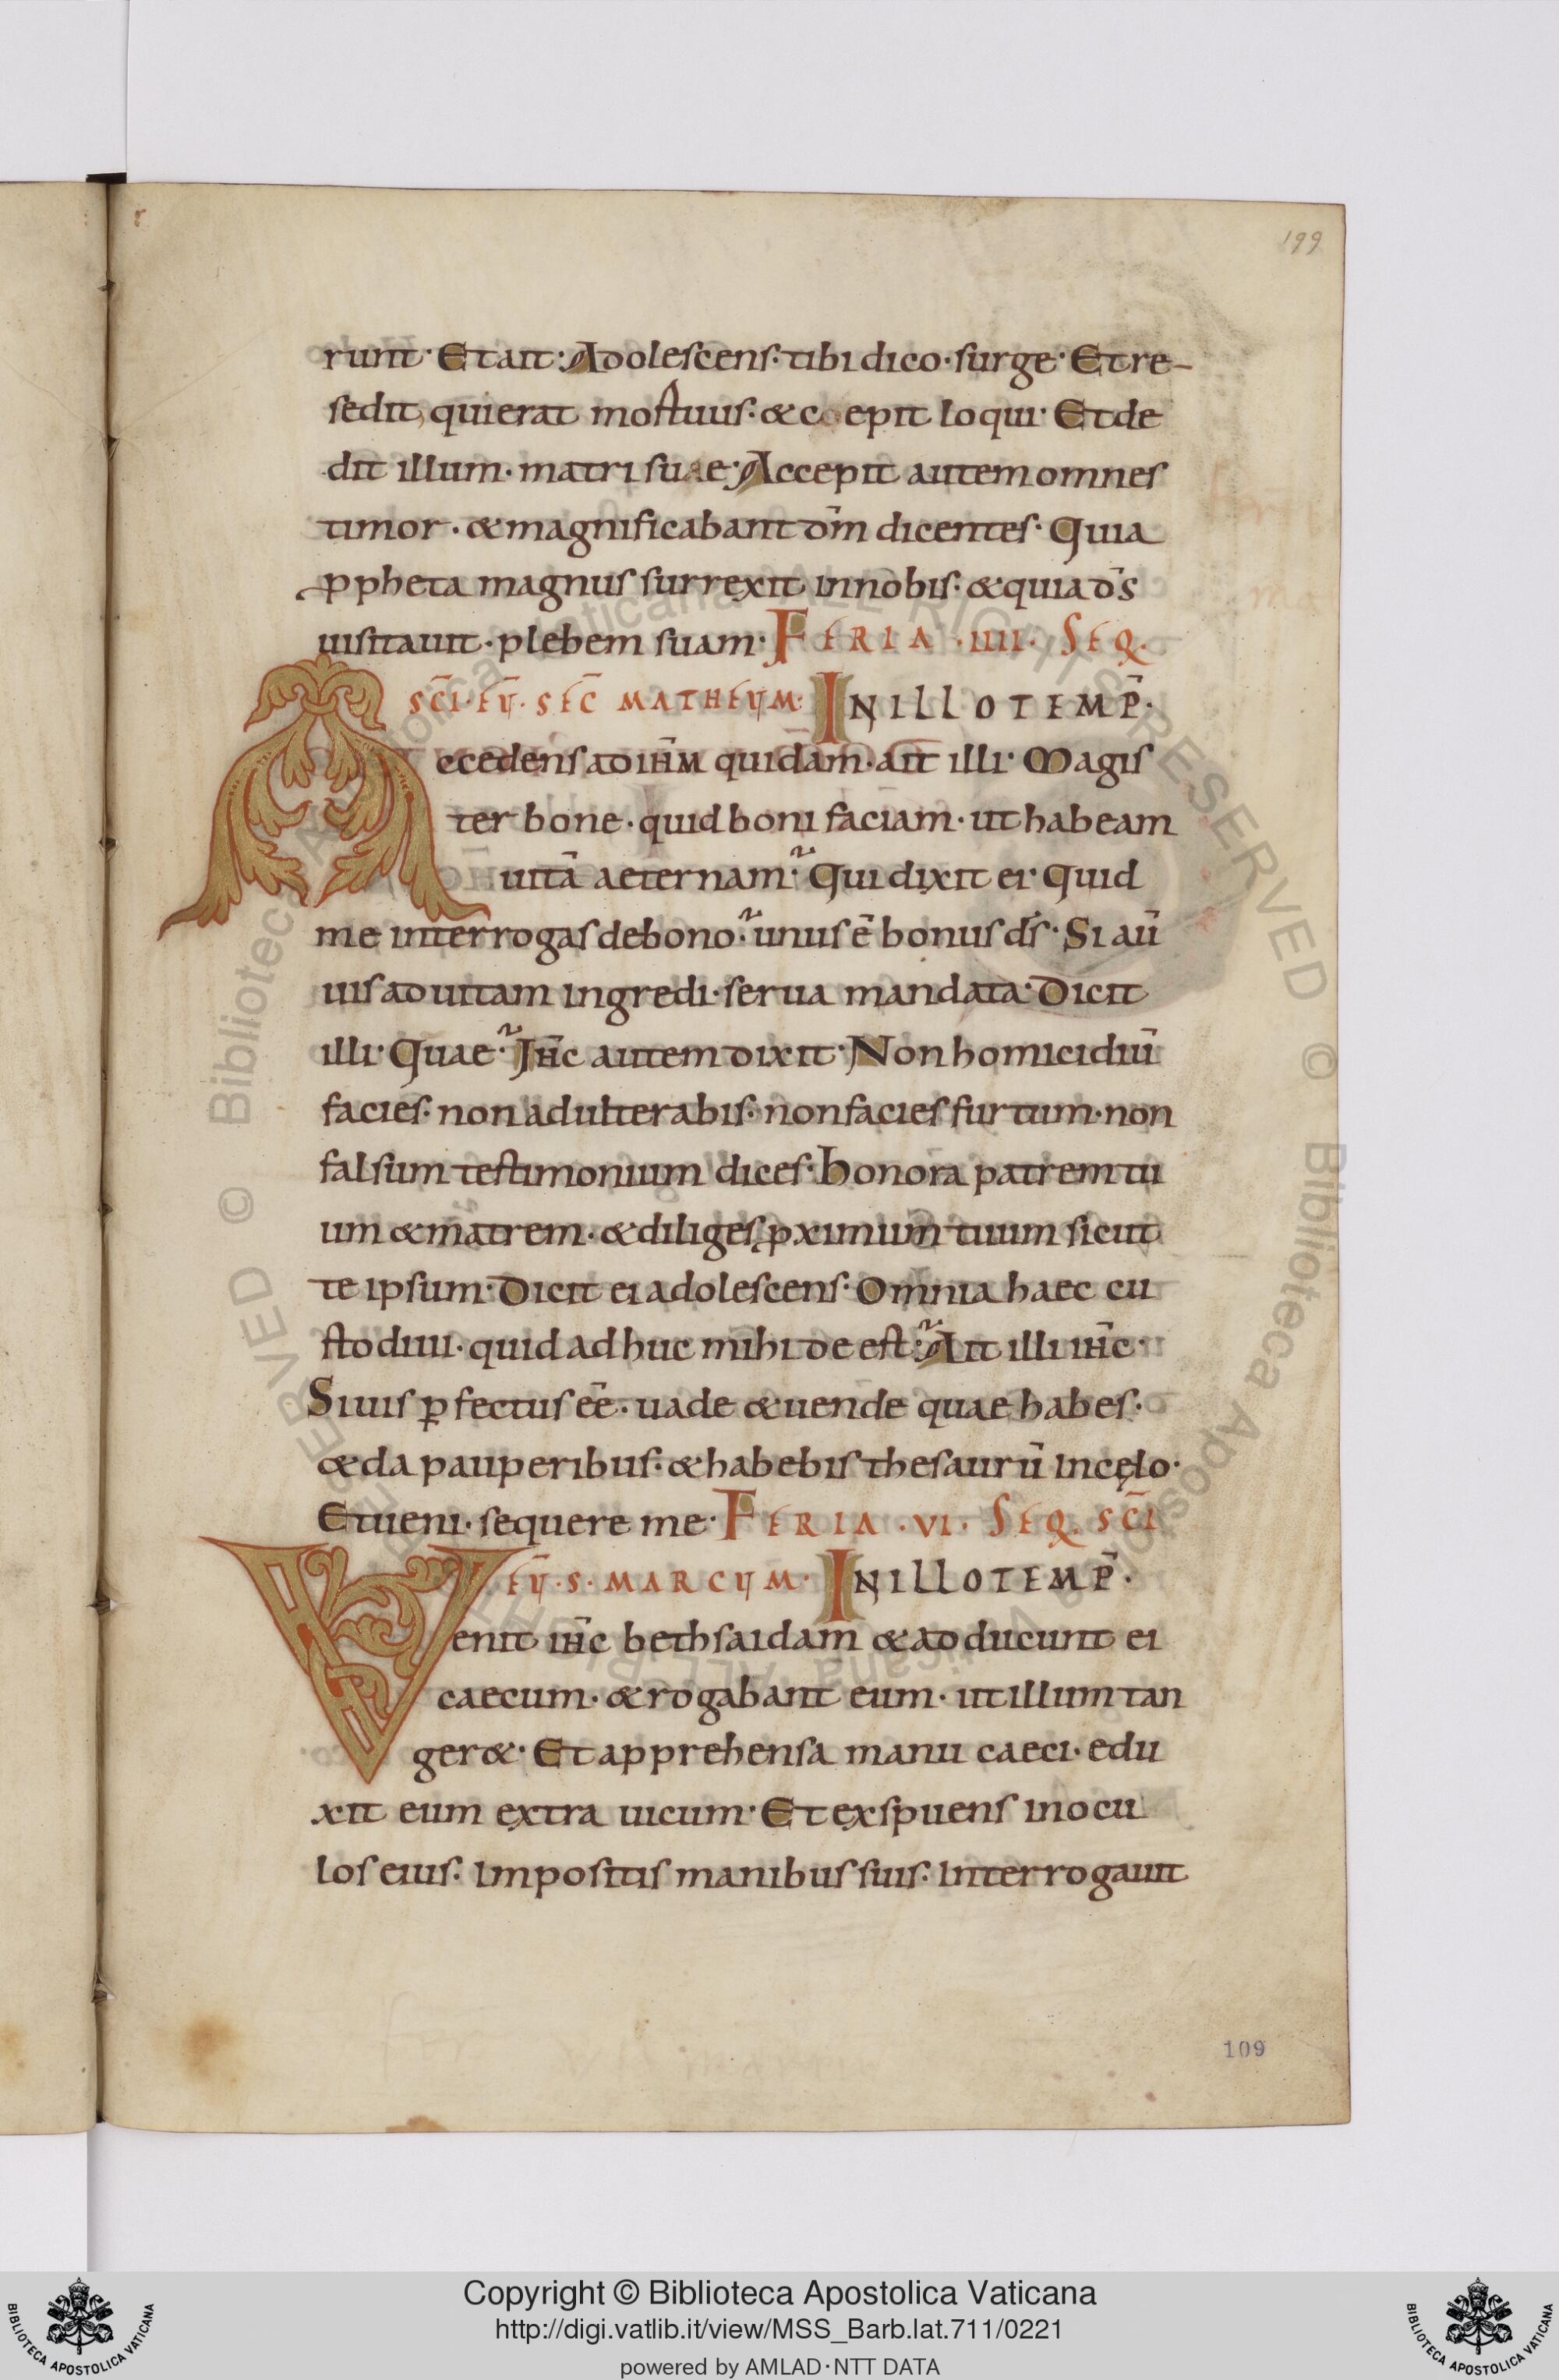 199
runt· Et ait: Adolescens· tibi dico· surge· Et re-
sedit, qui erat mortuus· & coepit loqui· Et de
dit illum· matri suae· Accepit autem omnes
timor· & magnificabant dm̄ dicentes· Quia
ppheta magnus surrexit in nobis· & quia ds̄
uisitauit· plebem suam· FERIA ·IIII· SEQ·
SCĪ· EŪ· SEC̄ MATHEUM· IN ILLO TEMP̄·
Accedens ad ihm̄ quidam· ait illi· Magis
ter bone· quid boni faciam· ut habeam
uitā aeternam? Qui dixit ei· Quid
me interrogas de bono? unus ē bonus ds̄· Si aū
uis ad uitam ingredi· serua mandata· Dicit
illi· Quae? Ihc̄ autem dixit· Non homicidiū
facies· non adulterabis· non facies furtum· non
falsum testimonium dices· honora patrem tu
um & matrem· & diliges pximum tuum sicut
te ipsum· Dicit ei adolescens· Omnia haec cu
stodiui· quid adhuc mihi deest? Ait illi ihc̄·
Si uis pfectus eē· uade & uende quae habes·
& da pauperibus· & habebis thesaurū in cęlo·
Et ueni· sequere me· FERIA ·VI· SEQ· SCĪ
EŪ· S· MARCUM· IN ILLO TEMP̄·
Venit ihc̄ bethsaidam & adducunt ei
caecum· & rogabant eum· ut illum tan
ger&· Et apprehensa manu caeci· edu
xit eum extra uicum· Et exspuens in ocu
los eius· Impositis manibus suis· Interrogauit
109
Copyright © Biblioteca Apostolica Vaticana
http://digi.vatlib.it/view/MSS_Barb.lat.711/0221
powered by AMLAD·NTT DATA
BIBLIOTECA APOSTOLICA VATICANA
BIBLIOTECA APOSTOLICA VATICANA
© Biblioteca Apostolica Vaticana ALL RIGHTS RESERVED © Biblioteca Apostolica Vaticana ALL RIGHTS RESERVED